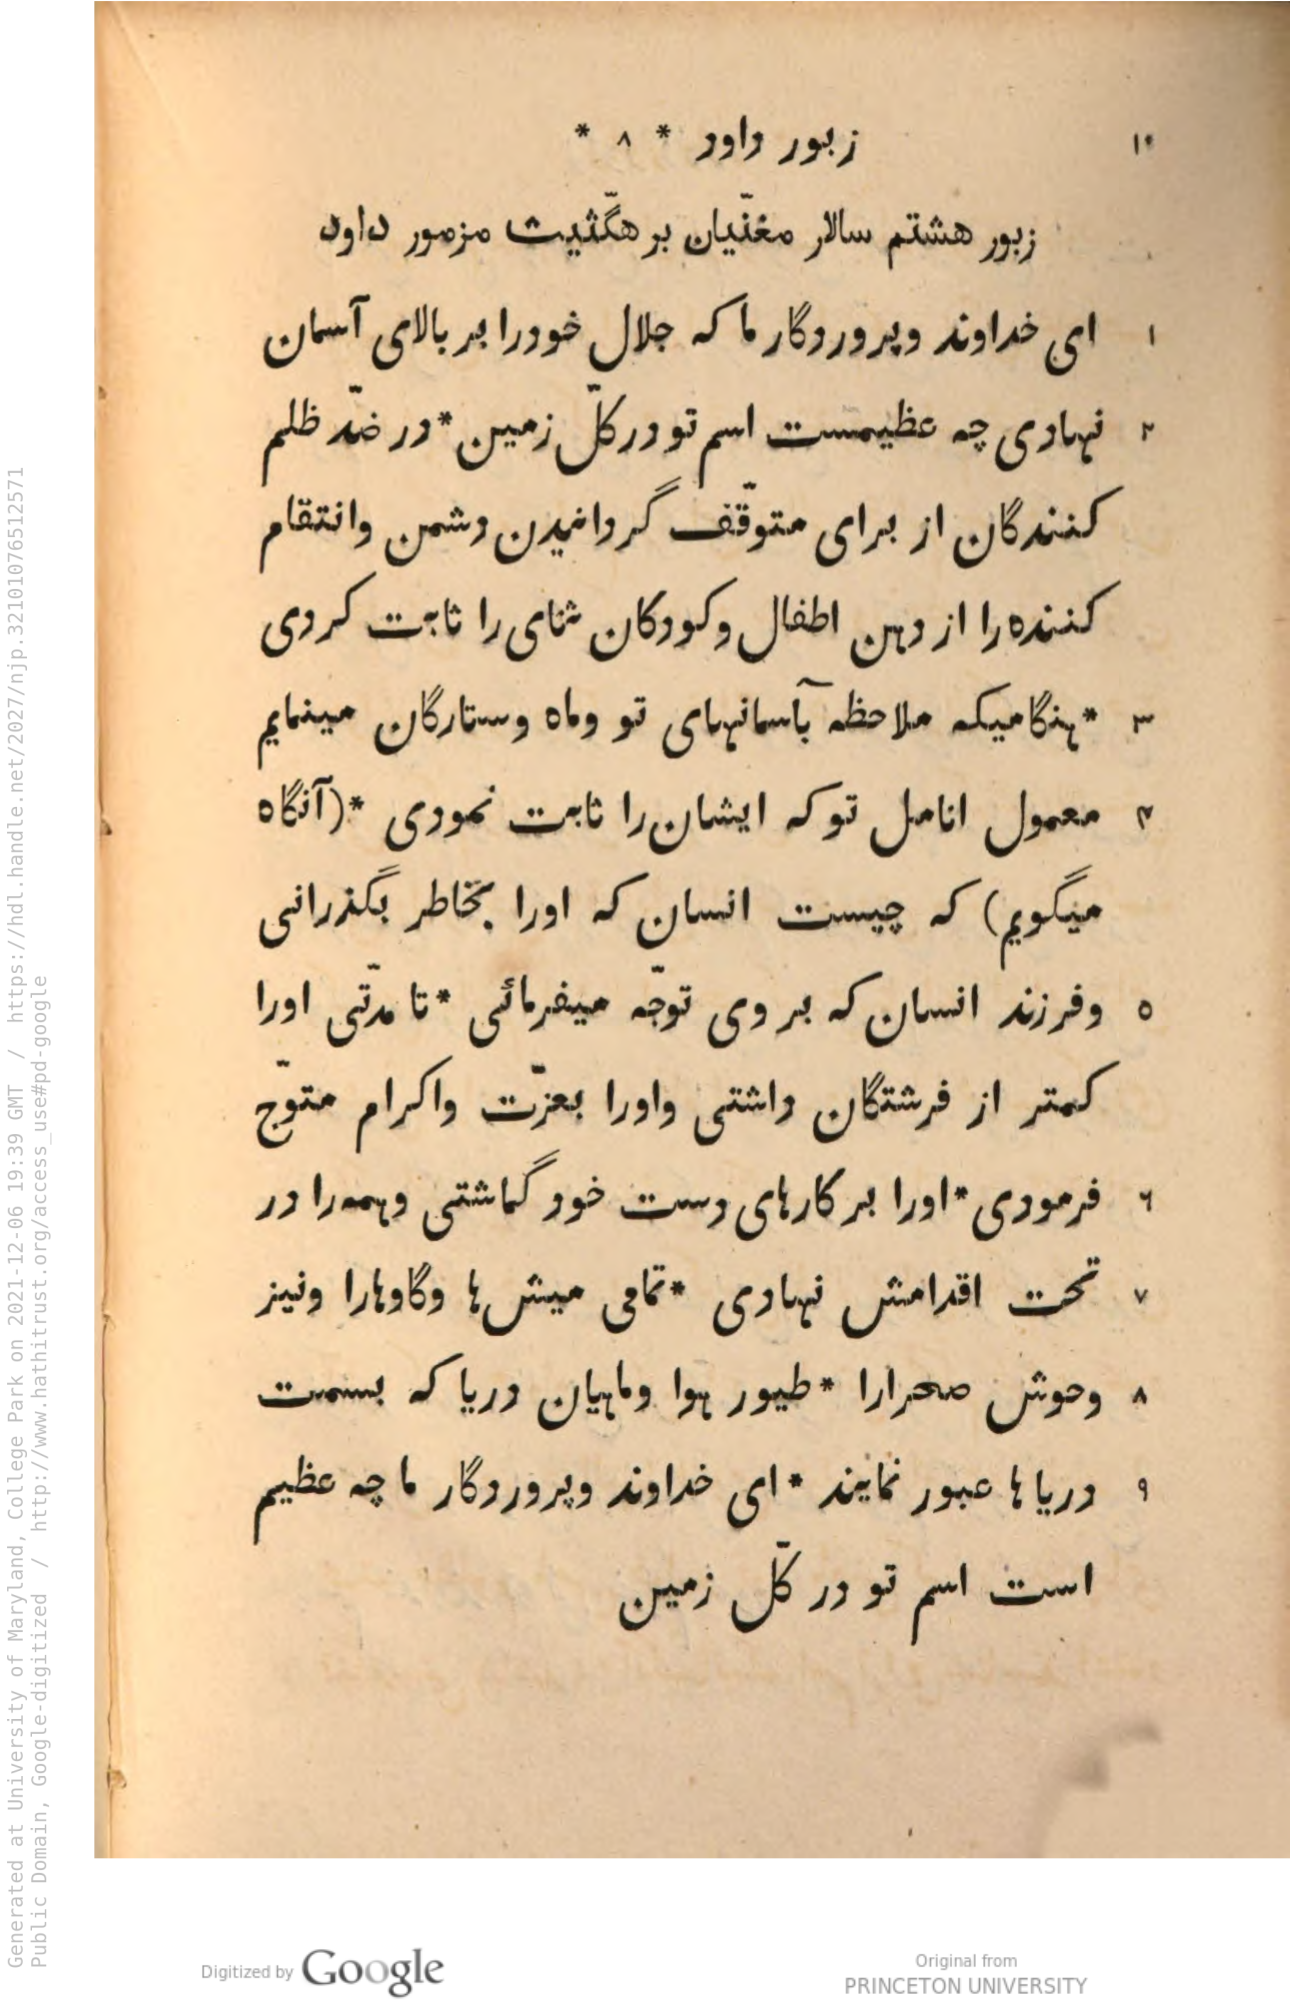 ۱۰ زبور داود * ۸ *
زبور هشتم سالار مغنّیان بر هگّثیث مزمور داود
۱ ای خداوند وپروردگار ما که جلال خودرا بر بالای آسمان
۲ نهادی چه عظیمست اسم تو در کلّ زمین * در ضدّ ظلم
کنندگان از برای متوقّف گردانیدن دشمن وانتقام
کننده‌را از دهن اطفال وکودکان ثنای را ثابت کردی
۳ * هنگامیکه ملاحظه بآسمانهای تو وماه وستارگان مینمایم
۴ معمول انامل تو که ایشان‌را ثابت نمودی * (آنگاه
میگویم) که چیست انسان که اورا بخاطر بگذرانی
۵ وفرزند انسان که بر وی توجّه میفرمائی * تا مدّتی اورا
کمتر از فرشتگان داشتی واورا بعزّت واکرام متوّج
۶ فرمودی * اورا بر کارهای دست خود گماشتی وهمه‌را در
۷ تحت اقدامش نهادی * تمامی میش‌ها وگاوهارا ونیز
۸ وحوش صحرارا * طیور هوا وماهیان دریا که بسمت
۹ دریاها عبور نمایند * ای خداوند وپروردگار ما چه عظیم
است اسم تو در کلّ زمین
Generated at University of Maryland, College Park on 2021-12-06 19:39 GMT / https://hdl.handle.net/2027/njp.32101076512571
Public Domain, Google-digitized / http://www.hathitrust.org/access_use#pd-google
Digitized by Google
Original from
PRINCETON UNIVERSITY